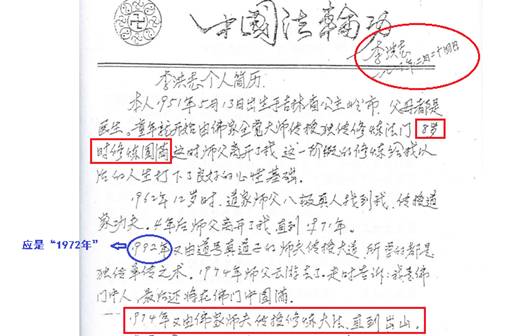 中國法輪功
李洪志
李洪志个人简历.
本人1951年5月13日出生于吉林省公主岭市.父母都是
医生.童年就开始由佛家全觉大师传授独传修炼法门.8岁
时修炼圆满这时师父离开了我.这一阶段的修炼给我以
后的人生打下了良好的心性基础.
1962年12岁时,道家师父八极真人找到我,传授道
家功夫.4年后师父离开了我.直到1971年.
应是“1972年”
1992年又由道号真道子的师夫传授大道,所学的都是
独传单传之术.1974年师父云游去了.走时告诉:我是佛
门中人,最后还将在佛门中圆满.
1974年又由佛家师夫传授修炼大法.直到出山.